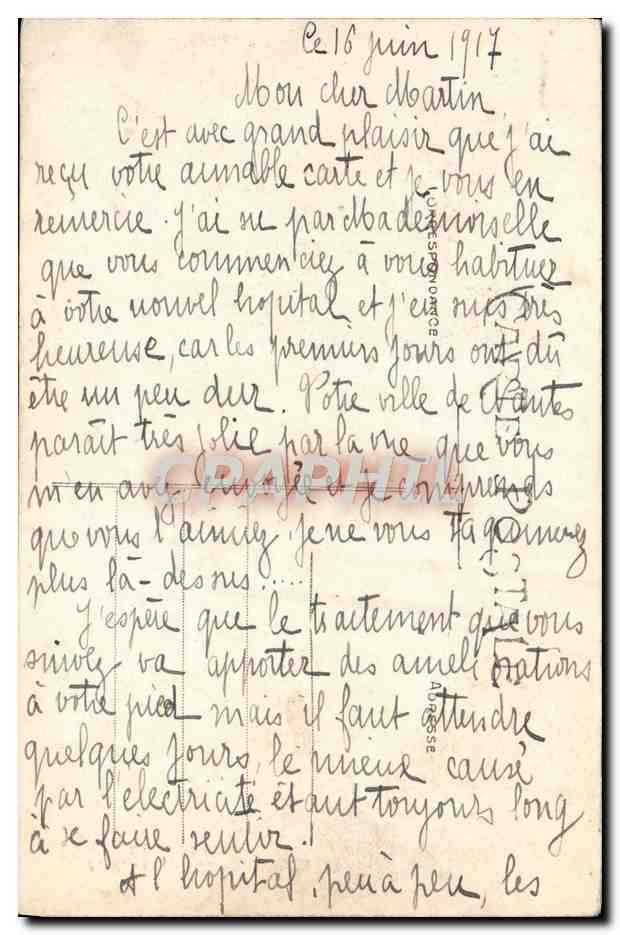 Ce 16 juin 1917
Mon cher Martin,
C'est avec grand plaisir que j'ai
reçu votre aimable carte et je vous en
remercie. J'ai su par Mademoiselle
que vous commenciez à vous habituer
à votre nouvel hopital et j'en suis très
heureuse, car les premiers jours ont dû
être un peu dur. Votre ville de Nantes
parait très jolie par la vue que vous
m'en avez envoyée et je comprends
que vous l'aimiez, je ne vous taquinerez
plus là-dessus.....
J'espère que le traitement que vous
suivez va apporter des améliorations
à votre pied mais il faut attendre
quelques jours, le mieux causé
par l'electricité étant toujours long
à se faire sentir.
A l'hopital, peu à peu, les
CARTE POSTALE
CORRESPONDANCE
ADRESSE
CPAPHIL